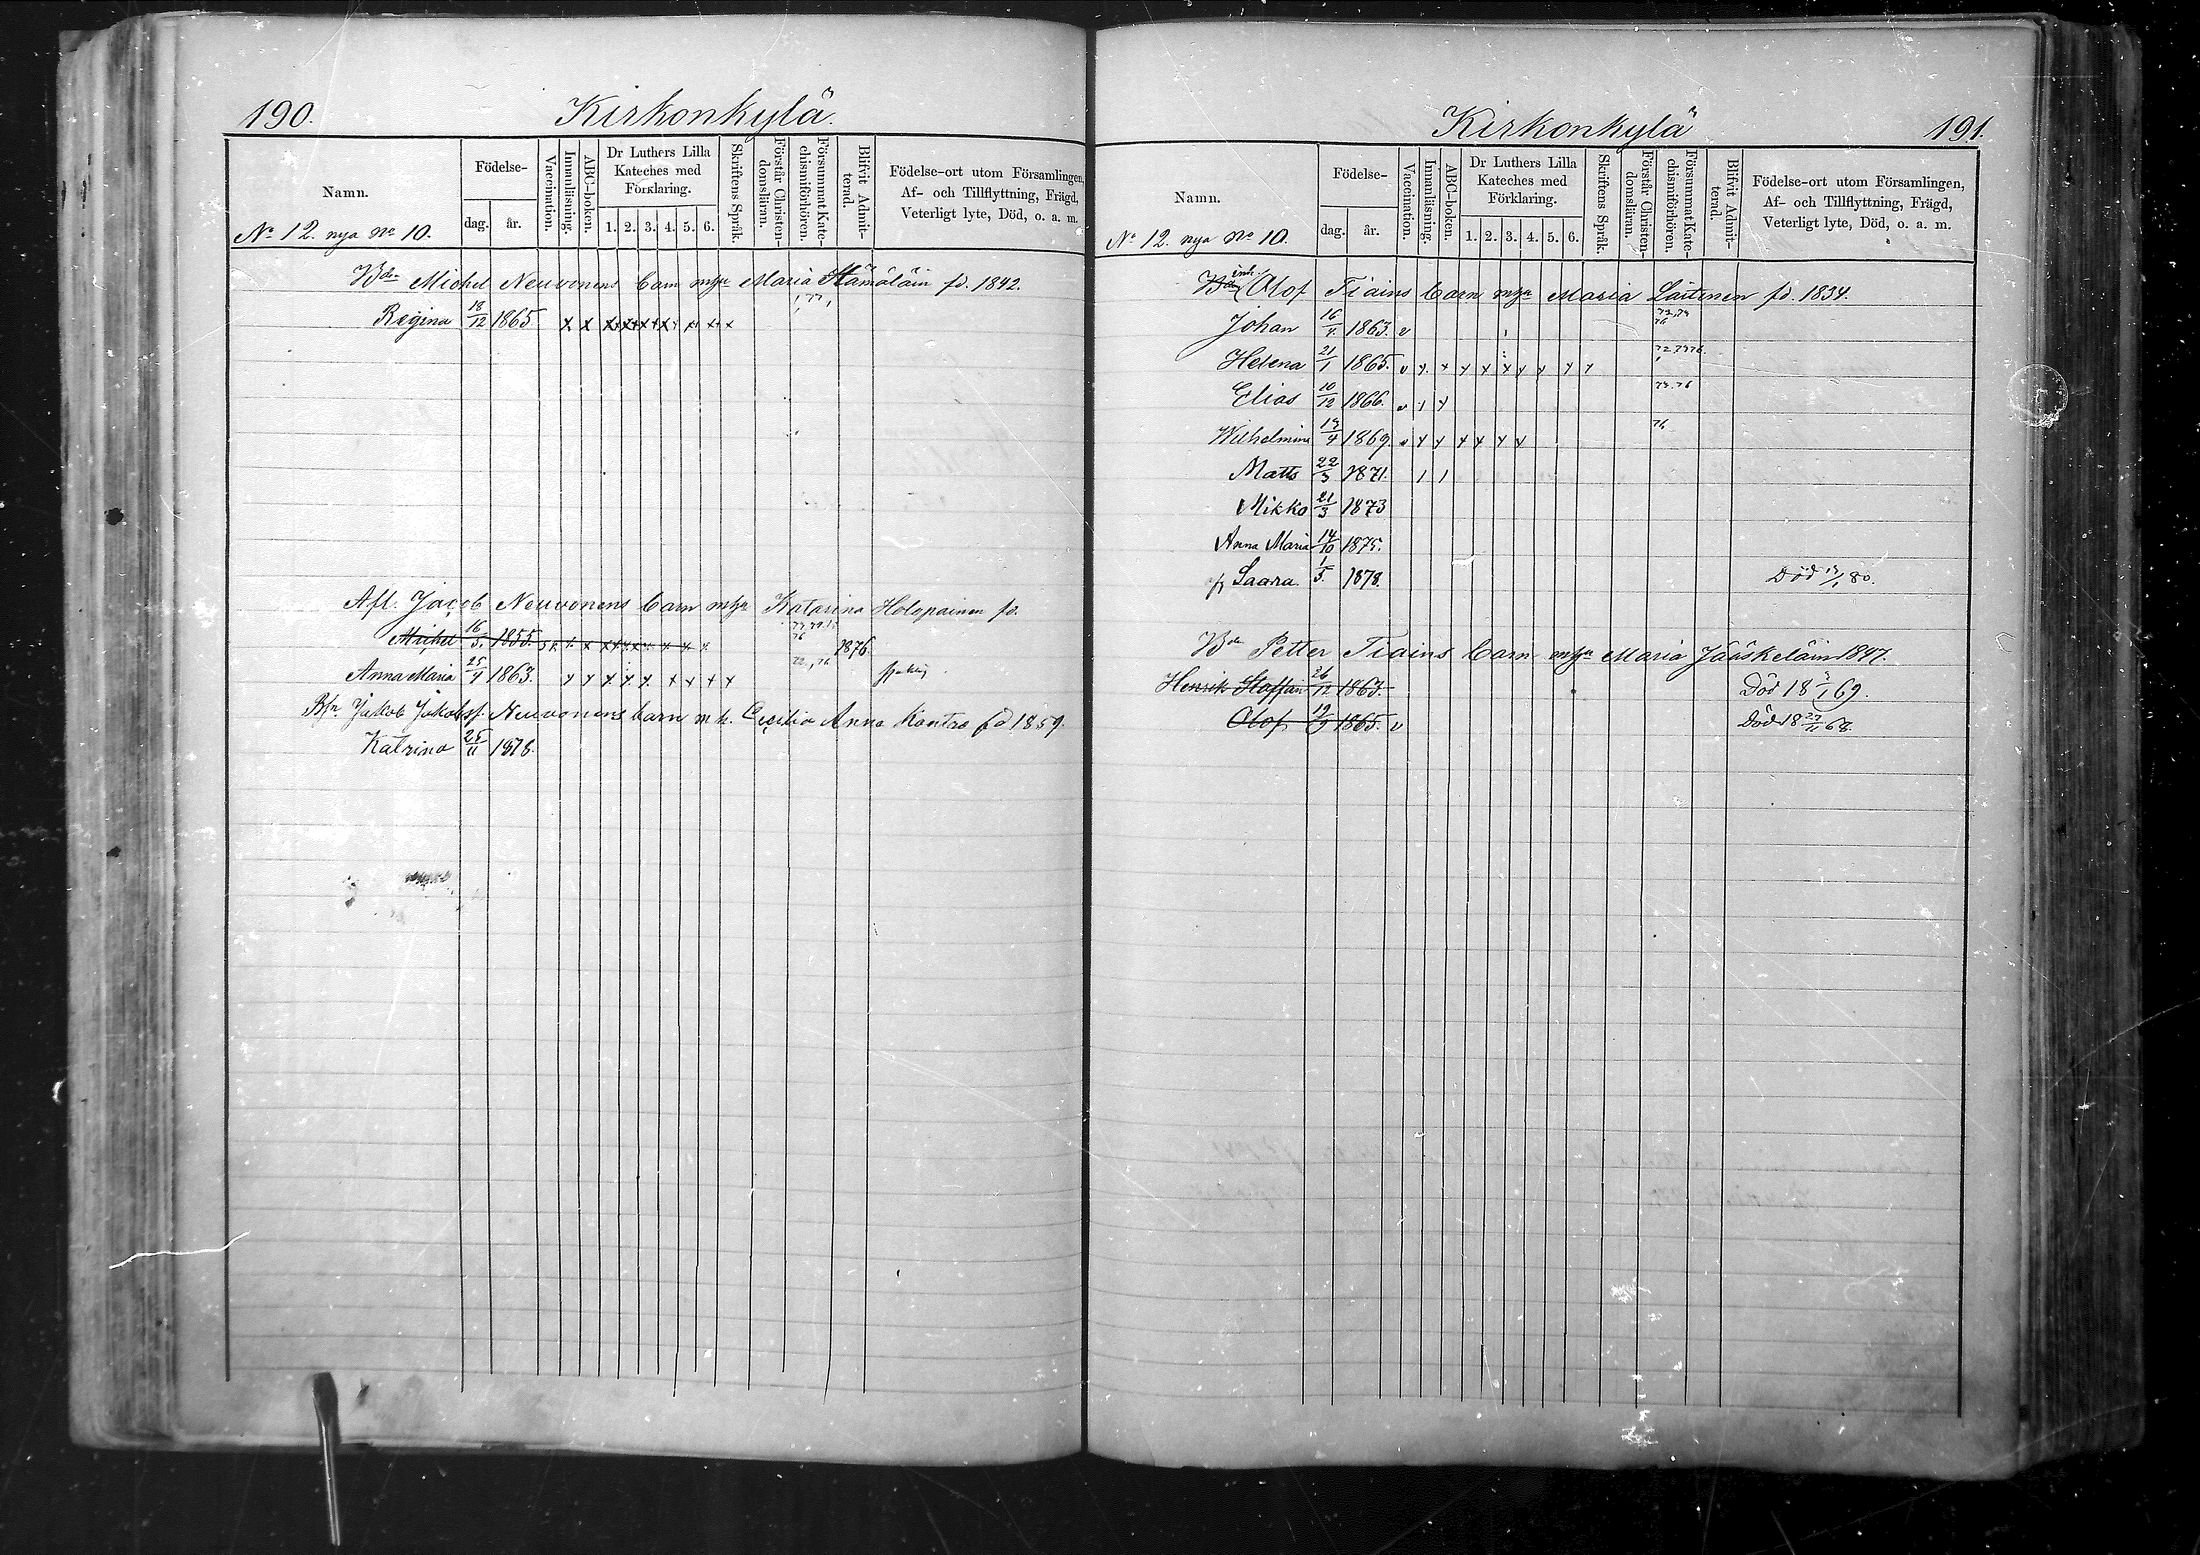 190. Kirkonkylä.
Namn.
Födelse-
dag. år.
Vaccination.
Innanläsning.
ABC-boken.
Dr Luthers Lilla
Kateches med
Förklaring.
1. 2. 3. 4. 5. 6.
Skriftens Språk.
Förstår Christen-
domsläran.
Försummat Kate-
chismiförhören.
Blifvit Admit-
terad.
Födelse-ort utom Församlingen,
Af- och Tillflyttning, Frägd,
Veterligt lyte, Död, o. a. m.
No 12. nya No 10.
Bdn Michel Neuvonens barn m hu Maria Hämäläin fd. 1842.
Regina 18/12 1865 x x x x x x x x x
Afl. Jacob Neuvonens barn m hu Katarina Holopainen fd.
Michel 16/5 1855. 1876.
Anna Maria 25/4 1863. x x x x x x x x x 72, 76
Jakob Jakobsf. Neuvonens barn m. h. Cecilia Anna Kantro fd 1859.
Katrina 25/11 1878.
Kirkonkylä 191.
Namn.
Födelse-
dag. år.
Vaccination.
Innanläsning.
ABC-boken.
Dr Luthers Lilla
Kateches med
Förklaring.
1. 2. 3. 4. 5. 6.
Skriftens Språk.
Förstår Christen-
domsläran.
Försummat Kate-
chismiförhören.
Blifvit Admit-
terad.
Födelse-ort utom Församlingen,
Af- och Tillflyttning, Frägd,
Veterligt lyte, Död, o. a. m.
No 12. nya No 10.
inh. Olof Tiains barn m hu Maria Laitinen fd. 1834.
Johan 16/4 1863. v
Helena 21/1 1865. v x x x x x x x x x
Elias 10/12 1866. v
Wilhelmina 1869. v x x x x x x 76
Matts 22/3 1871.
Mikko 21/3 1873
Anna Maria 14/10 1875.
Saara 1/5. 1878. Död 80.
Bdn Petter Tiains barn m hu Maria Jääskeläin 1847.
Henrik Staffan 26/12 1863. Död 18 69.
Olof 19/9 1865. v Död 18 27/11 68.